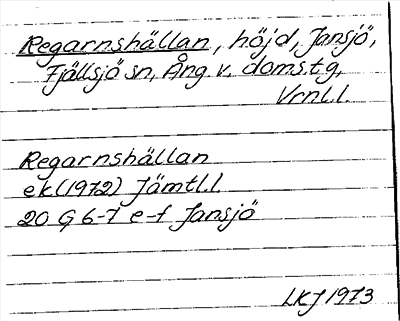 Regarnshällan, höjd, Jansjö,
Fjällsjö sn, Ång. v. doms.t.g,
Vrnl.l.
Regarnshällan
ek (1972) Jämtl.l
20 G 6-7 e-f Jansjö
LKJ 1973